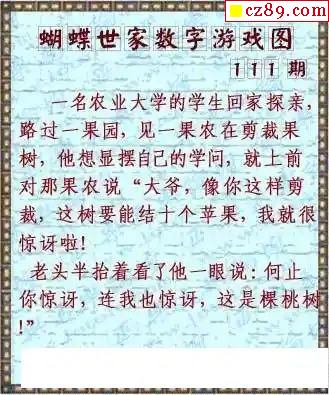 cz89.com
蝴蝶世家数字游戏图
111期
一名农业大学的学生回家探亲，
路过一果园，见一果农在剪裁果
树，他想显摆自己的学问，就上前
对那果农说“大爷，像你这样剪
裁，这树要能结十个苹果，我就很
惊讶啦！
老头半抬着看了他一眼说：何止
你惊讶，连我也惊讶，这是棵桃树
！”